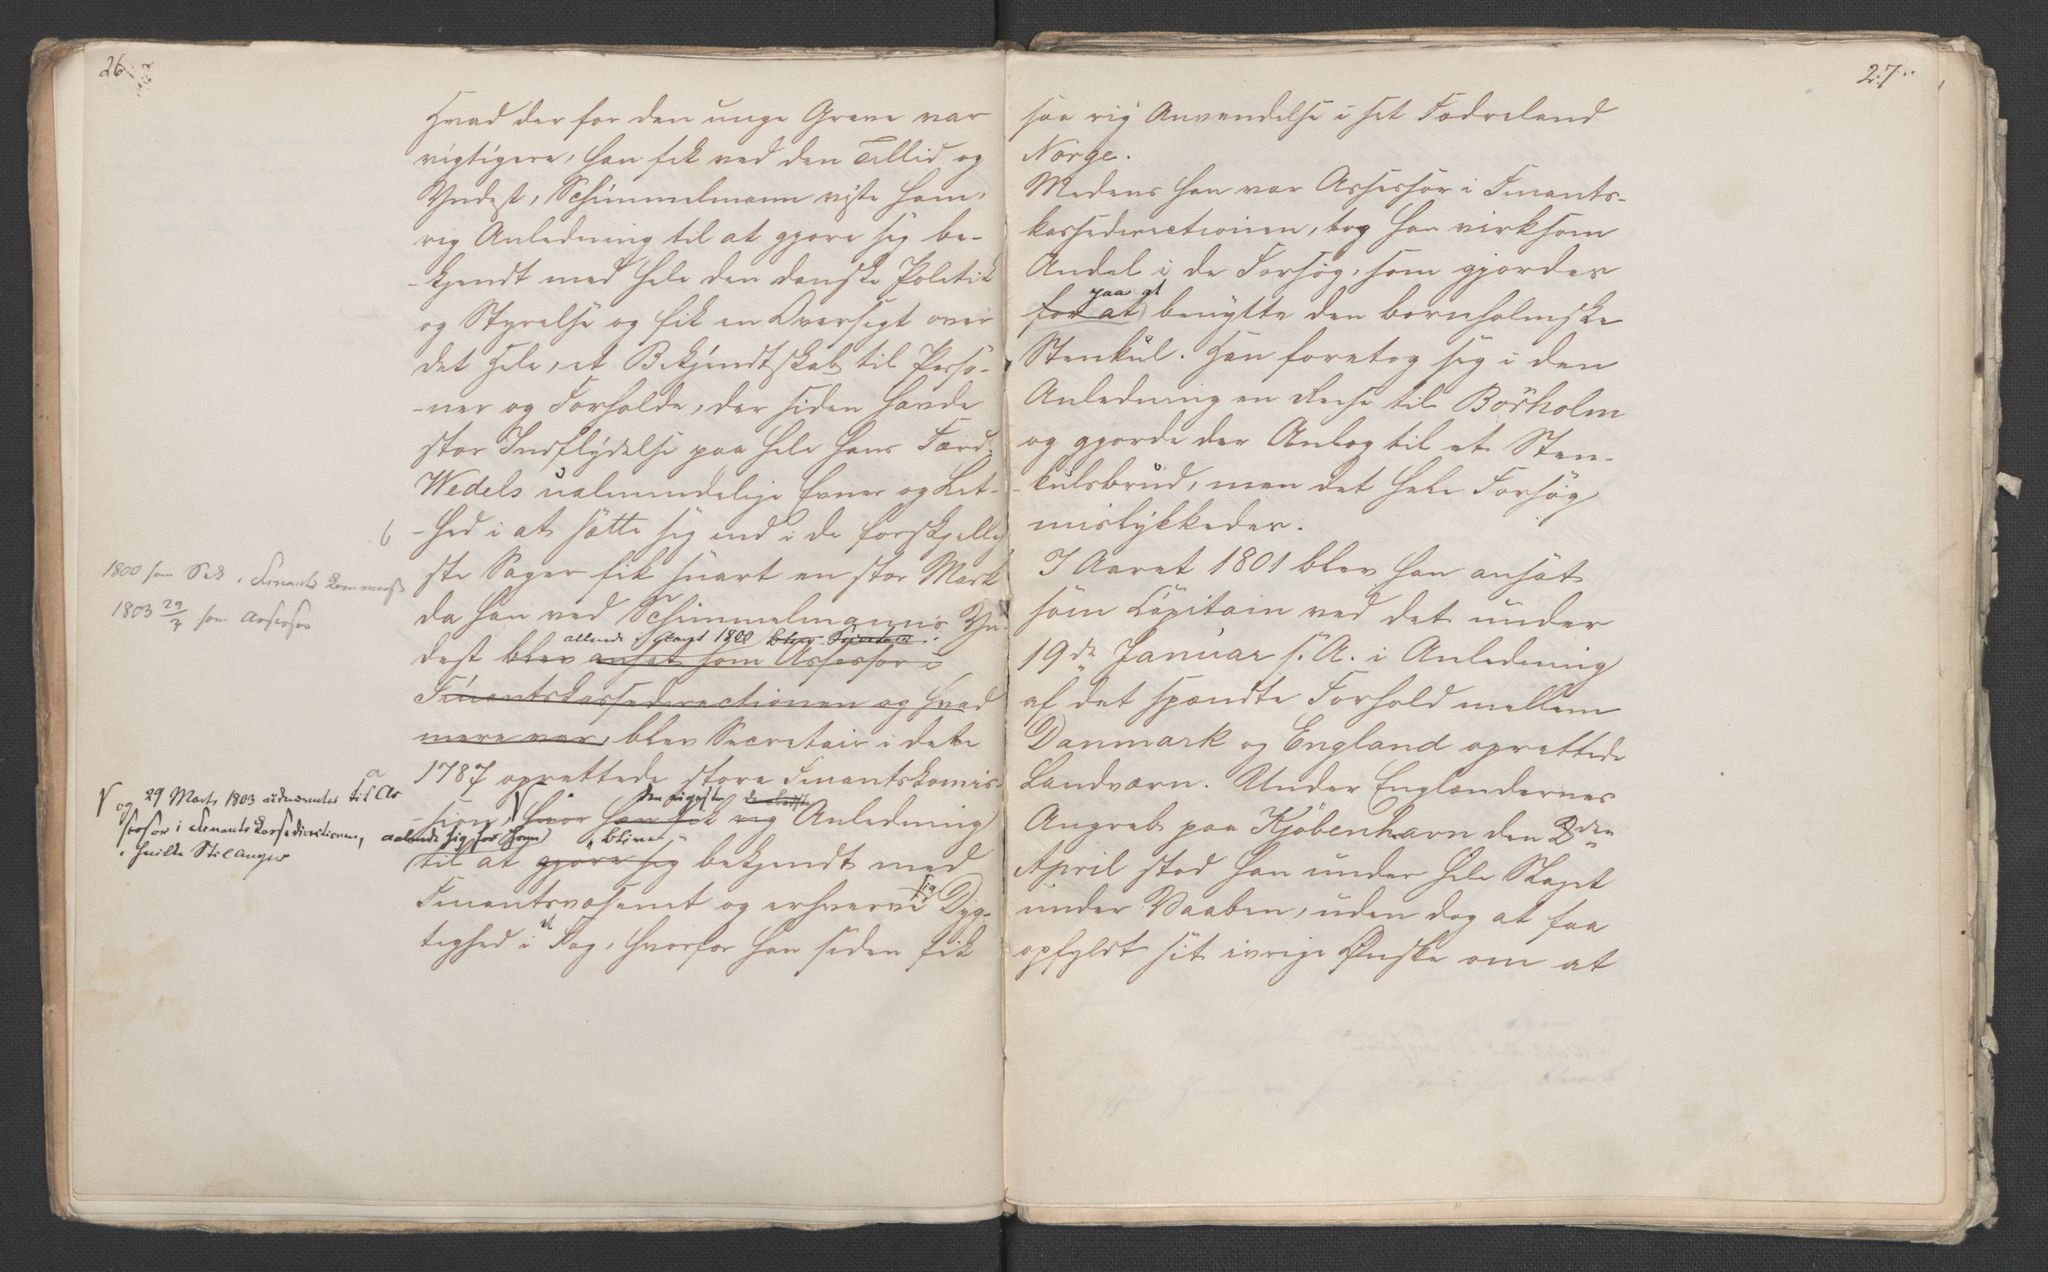 26
Hvad der for den unge Greve var
vigtigere, han fik ved den Tillid og
Yndest, Schimmelmann viste ham,
rig Anledning til at gjøre sig be-
-kjendt med hele den danske Politik
og Styrelse og fik en Oversigt over
det Hele, et Bekjendtskab til Perso-
-ner og Forholde, der siden havde
stor Indflydelse paa hele hans Færd.
Wedels ualmindelige Evner og Let-
-hed i at sætte sig ind i de forskjellig
ste Sager fik snart en stor Mark
da han ved Schimmelmanns Yn-
allerede i 1800 blev Secretair
dest blev ansat som Assessor i
Finantskassedirectionen og hvad
mere var, blev Secretair i dette
1787 oprettede store Finantskomis-
den rigeste
sion, hvor han fik rig Anledning
aabnede sig for ham blive
til at gjøre sig bekjendt med
sig
Finantsvæsenet og erhverve Dyg-
tighed i Fag, hvorfor han siden fik
6
1800 som Sek. i Finants Kommerss
1803 29/3 som Assessor
V og 29 Marts 1803 udnævntes til As
sessor i Finantskassedirectionen,
i hvilke Stillinger
27
saa rig Anvendelse i sit Fædreland
Norge.
Medens han var Assessor i Finants-
kassedirectionen, tog han virksom
Andel i de Forsøg, som gjordes
paa at
for at benytte den bornholmske
Stenkul. Han foretog sig i den
Anledning en Reise til Bornholm
og gjorde der Anlæg til et Sten-
-kulsbrud, men det hele Forsøg
mislykkedes.
I Aaret 1801 blev han ansat
som Capitain ved det under
19de Januar s. A. i Anledning
af det spændte Forhold mellem
Danmark og England oprettede
Landværn. Under Englændernes
Angreb paa Kjøbenhavn den 2den
April stod han under hele Slaget
under Vaaben, uden dog at faa
opfyldt sit ivrige Ønske om at